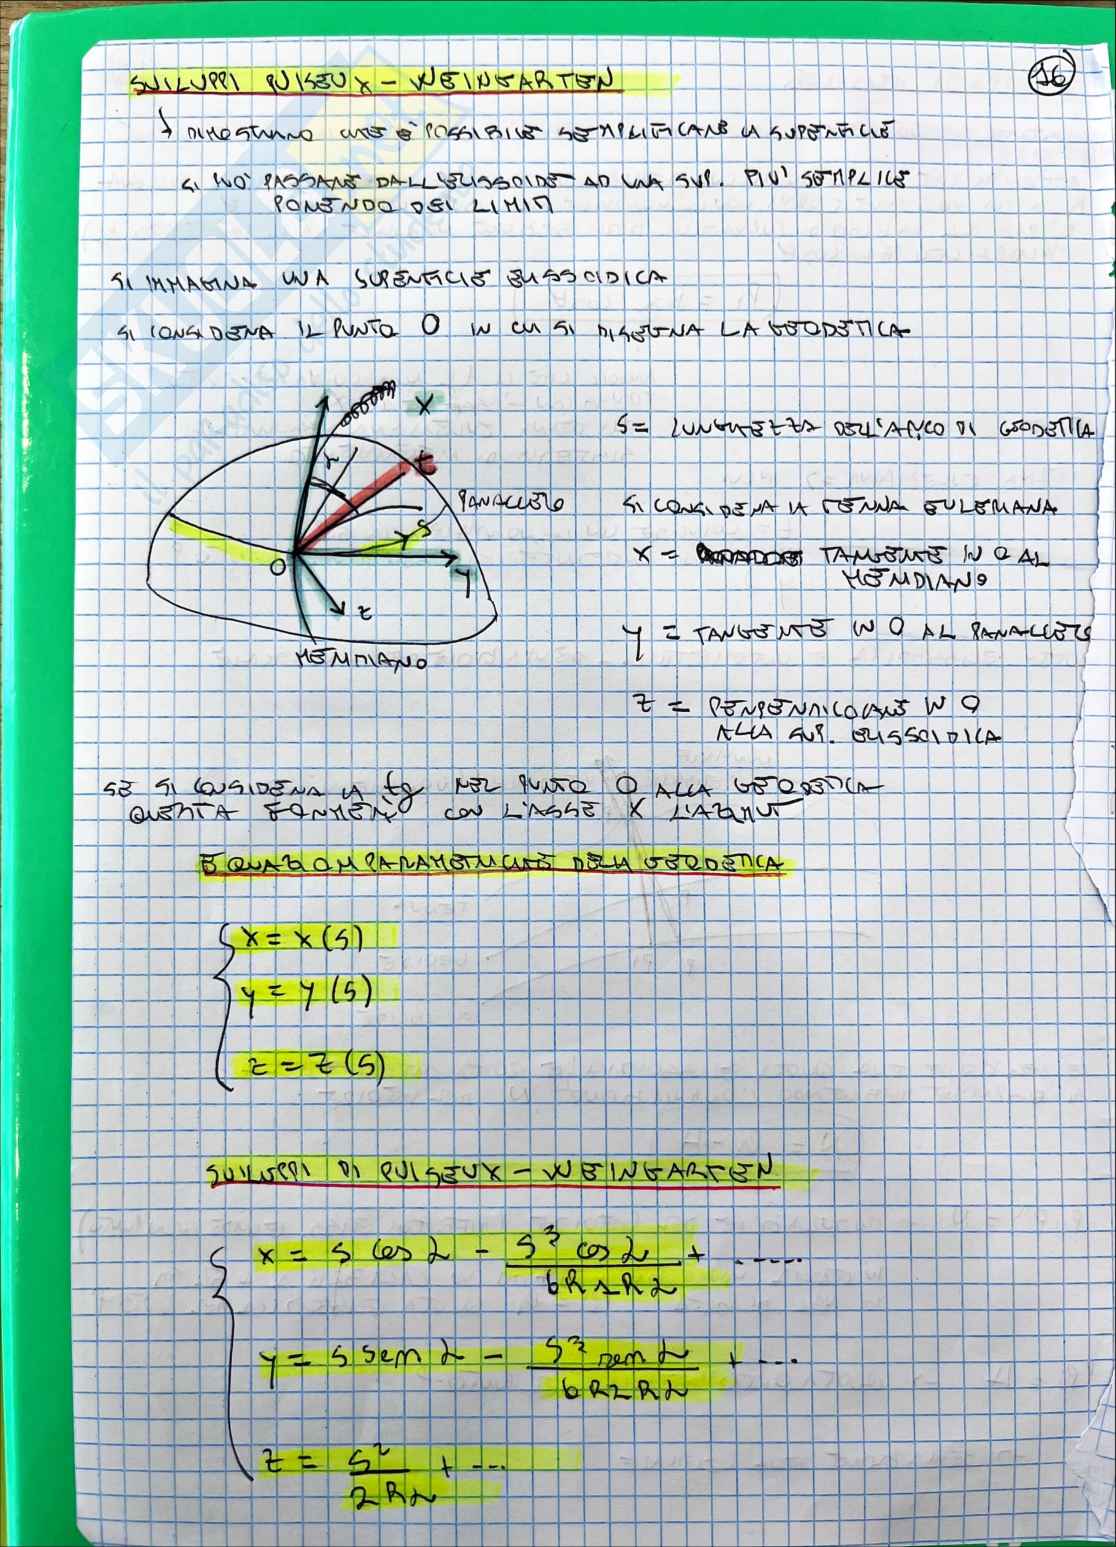 SVILUPPI PUISEUX - WEINGARTEN
16
↳ DIMOSTRANO CHE È POSSIBILE SEMPLIFICARE LA SUPERFICIE
SI PUÒ PASSARE DALL'ELISSOIDE AD UNA SUP. PIÙ SEMPLICE
PONENDO DEI LIMITI
SI IMMAGINA UNA SUPERFICIE ELISSOIDICA
SI CONSIDERA IL PUNTO O IN CUI SI DISEGNA LA GEODETICA
X
t
α
PARALLELO
S
O
Y
Z
MERIDIANO
S = LUNGHEZZA DELL'ARCO DI GEODETICA
SI CONSIDERA LA TERNA EULERIANA
X = TANGENTE IN O AL
MERIDIANO
Y = TANGENTE IN O AL PARALLELO
Z = PERPENDICOLARE IN O
ALLA SUP. ELISSOIDICA
SE SI CONSIDERA LA tg NEL PUNTO O ALLA GEODETICA
QUESTA FORMERÀ CON L'ASSE X L'AZIMUT
EQUAZIONI PARAMETRICHE DELLA GEODETICA
X = X (S)
Y = Y (S)
Z = Z (S)
SVILUPPI DI PUISEUX - WEINGARTEN
X = S cos α - S³ cos α / 6 R1 Rα + .....
Y = S sen α - S³ sen α / 6 R1 Rα + ...
Z = S² / 2 Rα + ...